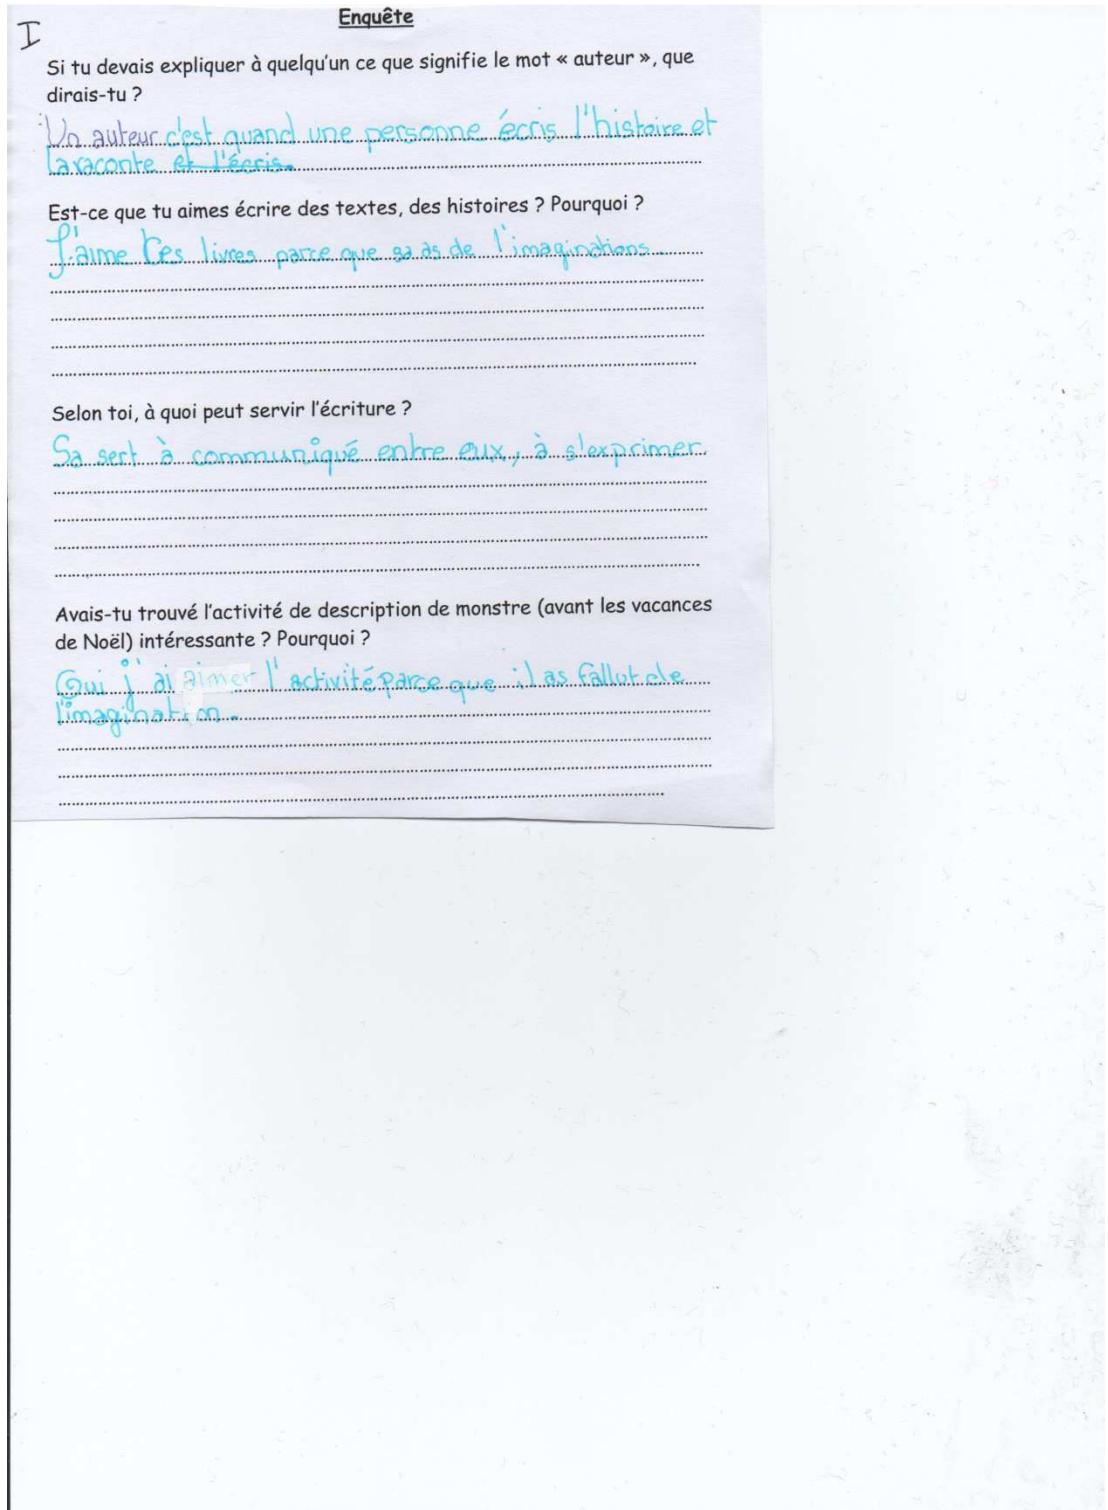 I
Enquête
Si tu devais expliquer à quelqu'un ce que signifie le mot « auteur », que
dirais-tu ?
Un auteur c'est quand une personne écris l'histoire et
la raconte et l'écris.
Est-ce que tu aimes écrire des textes, des histoires ? Pourquoi ?
J'aime les livres parce que sa as de l'imaginations.
Selon toi, à quoi peut servir l'écriture ?
Sa sert à communiqué entre eux, à s'exprimer.
Avais-tu trouvé l'activité de description de monstre (avant les vacances
de Noël) intéressante ? Pourquoi ?
Oui j'ai aimer l'activité parce que il as fallut de
l'imagination.